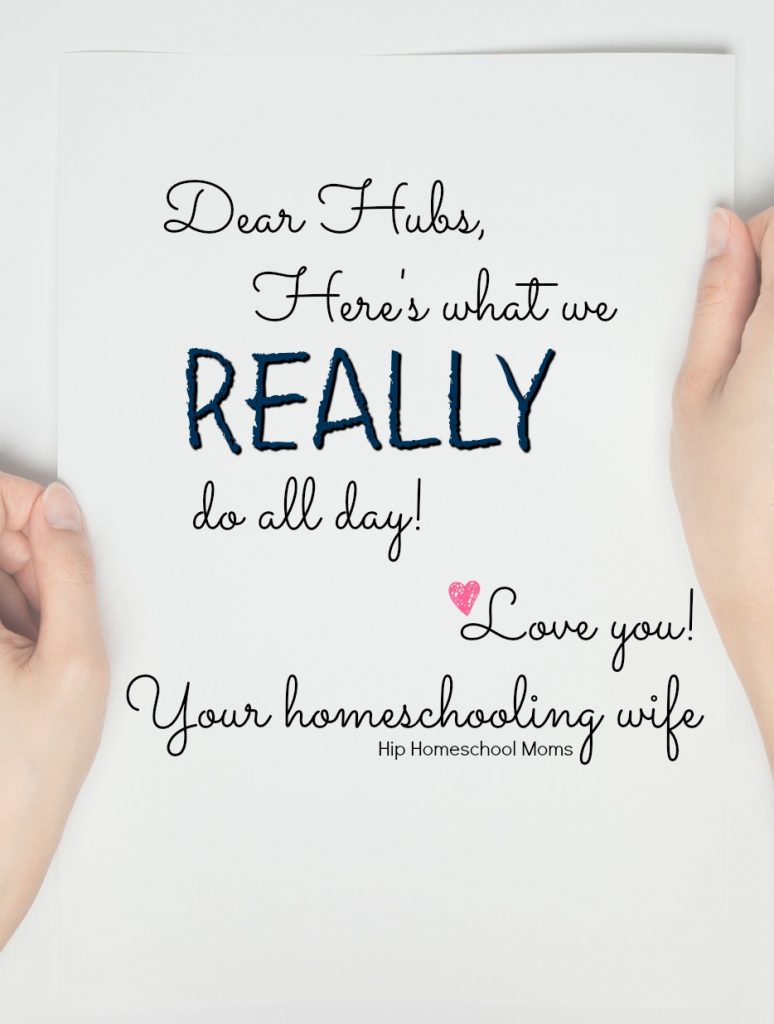 Dear Hubs,
Here's what we
REALLY
do all day!
Love you!
Your homeschooling wife
Hip Homeschool Moms